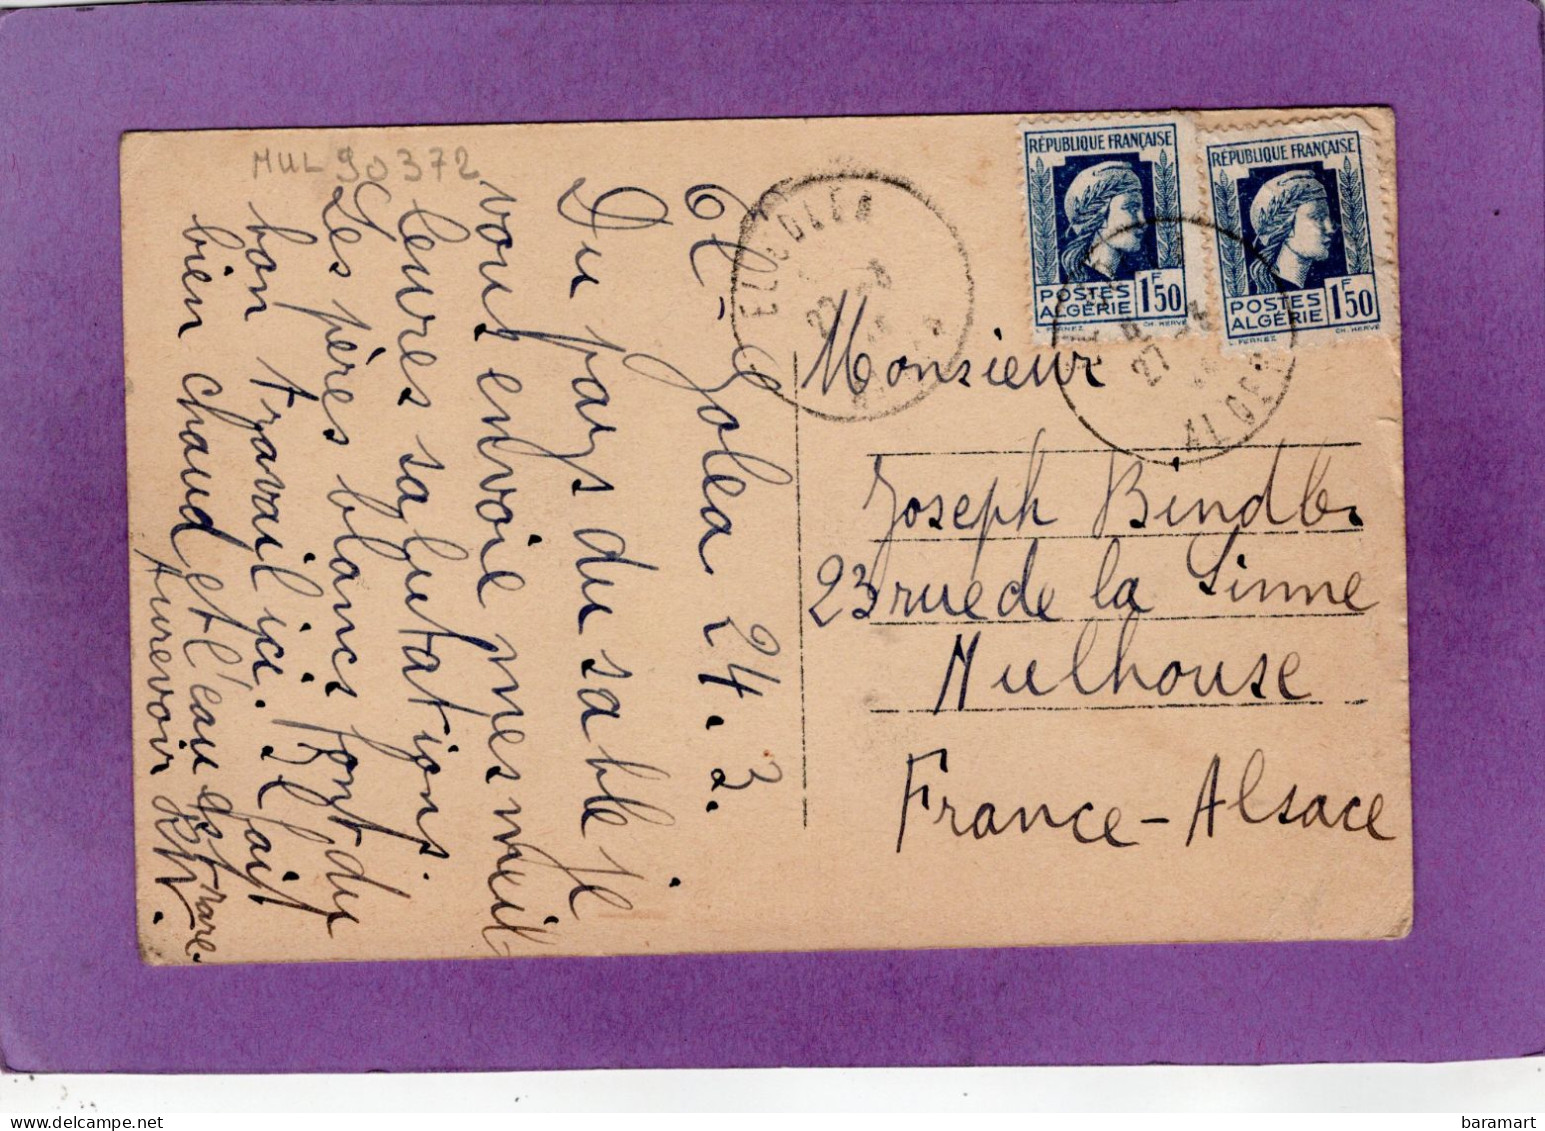 MUL 90 372
El-Golea 24.3.
Du pays du sable je
vous envoie mes meil-
leures salutations.
Les pères blancs font du
bon travail ici. Il fait
bien chaud et l'eau est rare.
Aurevoir
RÉPUBLIQUE FRANÇAISE
POSTES
ALGÉRIE
1F50
CH. HERVÉ
RÉPUBLIQUE FRANÇAISE
POSTES
ALGÉRIE
1F50
L. FERNEZ
CH. HERVÉ
EL GOLEA
27
ALGER
Monsieur
Joseph Bindler
23 rue de la Sinne
Mulhouse
France-Alsace
baramart